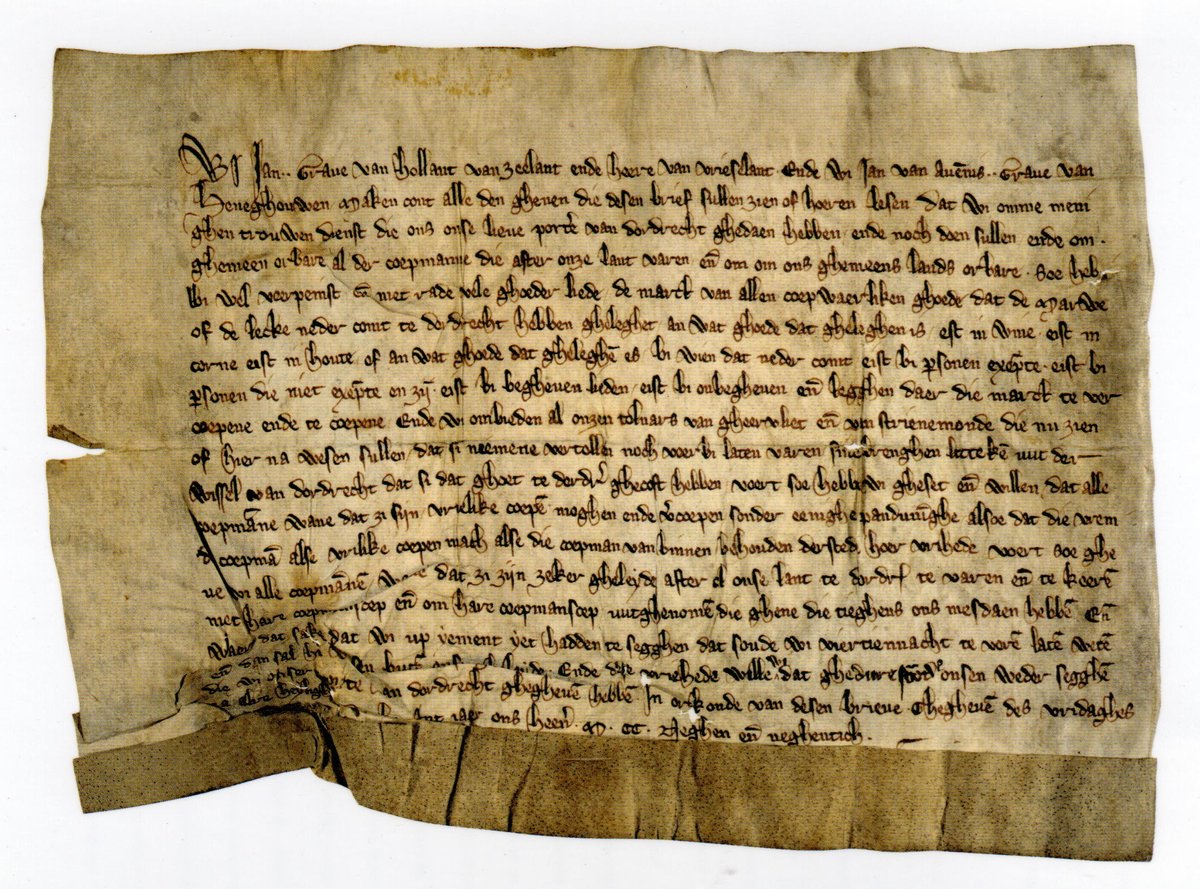 Wi Jan.. Grave van hollant van zeelant ende heere van vrieselant. Ende wi Jan van avēnis.. Grave van
heneghouwen. Maken cont alle den ghenen die desen brief sullen zien of hoeren lesen dat wi omme meni
ghen trouwen dienst die ons onse lieve porte van dordrecht ghedaen hebben ende noch doen sullen ende om.
ghemeen orbare al der coepmanne die after onze lant varen eñ om om ons ghemeens lands orbare. Soe heb
bi wel voerpeinst eñ met rade vele ghoeder liede, de marct van allen coepwaerliken ghoede dat de Marwe
of de lecke neder comt te dordrecht hebben gheleghet an wat ghoede dat gheleghen is eist in wine eist in
corne eist in houte of an wat ghoede dat gheleghē es bi wien dat neder comt eist bi psonen exēpte. eist bi
psonen die niet exēpte en zÿ eist bi begheven lieden, eist bi onbegheven eñ legghen daer die marct te ver
coepene ende te coepene. Ende wi ombieden al onzen tolnars van gheervliet eñ van strienemonde die nu zien
of hier na wesen sullen, dat si neemene vertollen noch voerbi laten varen sine brenghen litteken uut der
wissel van dordrecht dat si dat ghoet te dordr ghecoft hebben voert soe hebbe wi gheset eñ willen, dat alle
coepmāne wane dat zi sijn vrilike coepē moghen ende vcoepen sonder eenighe pandinghe alsoe dat die vrem
d coepmā alse vrilike coepen mach alse die coepman van binnen, behouden der sted hoer vrihede voert soe ghe
ve wi alle coepmānē, dat zi zijn zeker gheleyde after al onse lant te dordr te varen eñ te keerē
met hare eñ om hare coepmanscep uutghenomē die ghene die tieghens ons mesdaen hebbē Eñ
waer dat sake dat wi up yement yet hadden te segghen dat soude wi viertiennacht te vorē latē wetē
eñ dan sal hi Ende dese vrihede wille wi dat ghedure onsen weder segghē
die wi onser porte van dordrecht gheghevē hebbē In orkonde van desen brieve. Ghegheven des vridaghes
jaer ons heerē. M. CC. Neghen eñ neghentich.